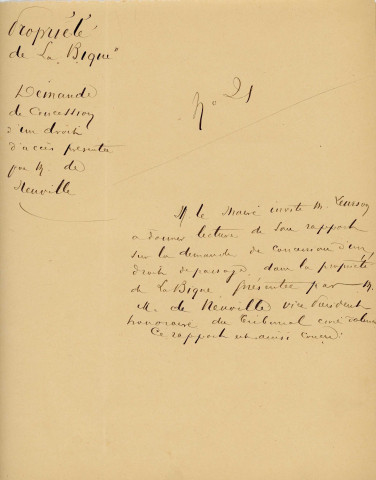 Propriété
de La Bique
Demande
de Concession
d'un droit
d'accès présentée
par M. de
Neuville
N° 21
M le Maire invite M.
a donner lecture de son rapport
sur la demande de concession d'un
droit de passage dans la propriété
de La Bique présentée par M.
M. de Neuville vice Président
honoraire du Tribunal civil
Ce rapport est ainsi conçu